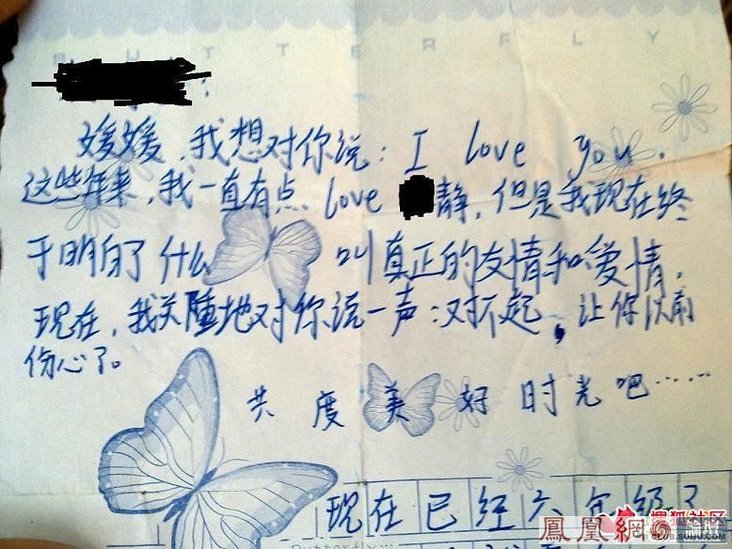 BUTTERFLY
媛媛，我想对你说：I love you.
这些年来，我一直有点 love 静，但是我现在终
于明白了什么叫真正的友情和爱情，
现在，我地对你说一声：对不起，让你以前
伤心了。
共度美好时光吧……
现在已经六年级了
Butterfly...
鳳凰網
SOHU.COM